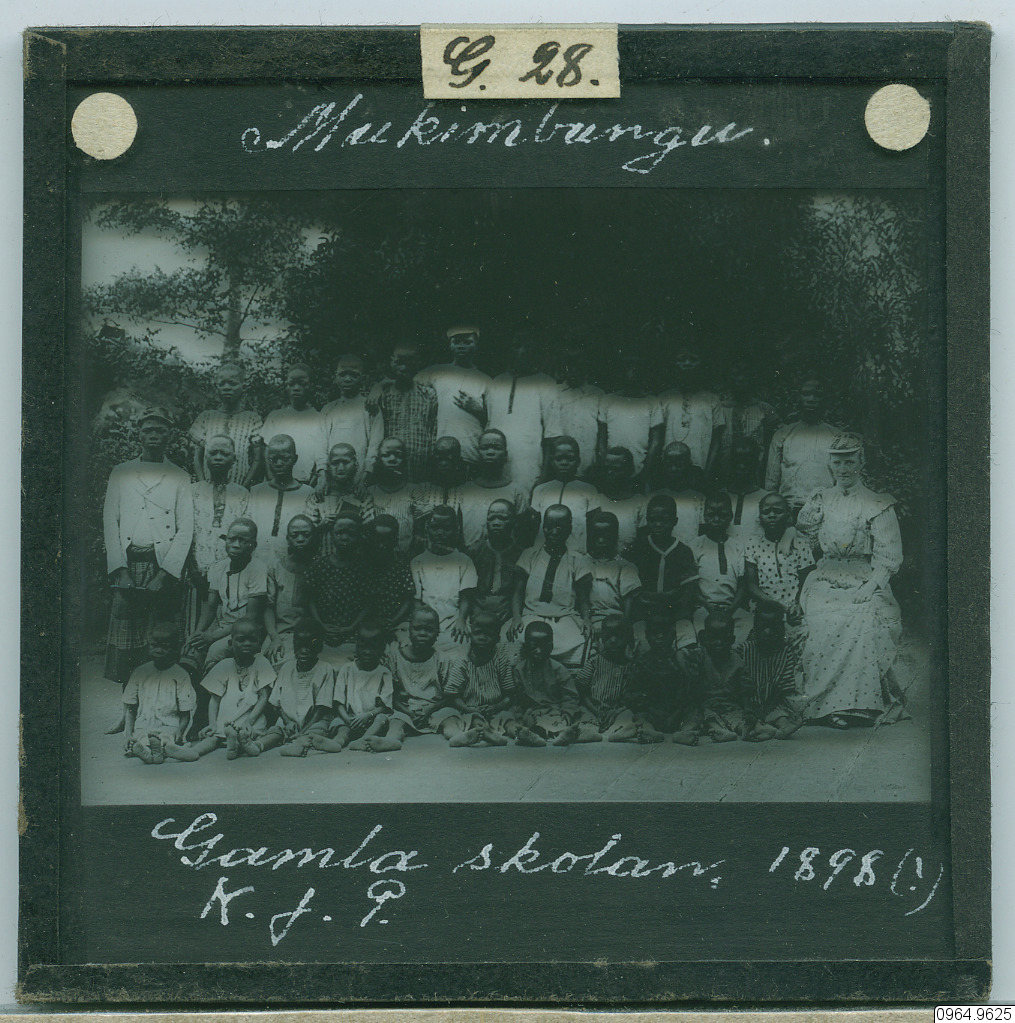 G. 28.
Mukimbungu.
Gamla skolan. 1898 (!)
K. J. P.
0964.9625